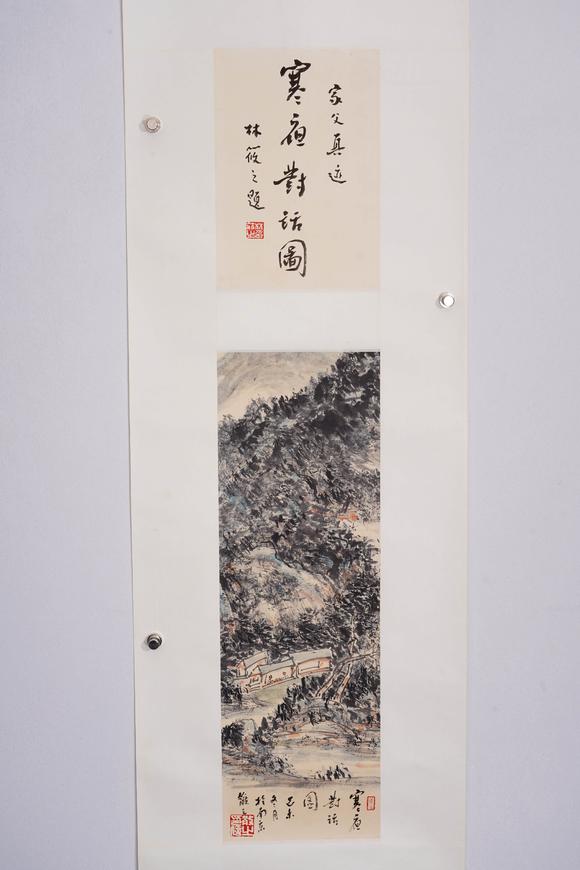 家父真迹
寒夜對話圖
林筱之題
寒夜
對話
圖
己未
冬月
於南京
散之